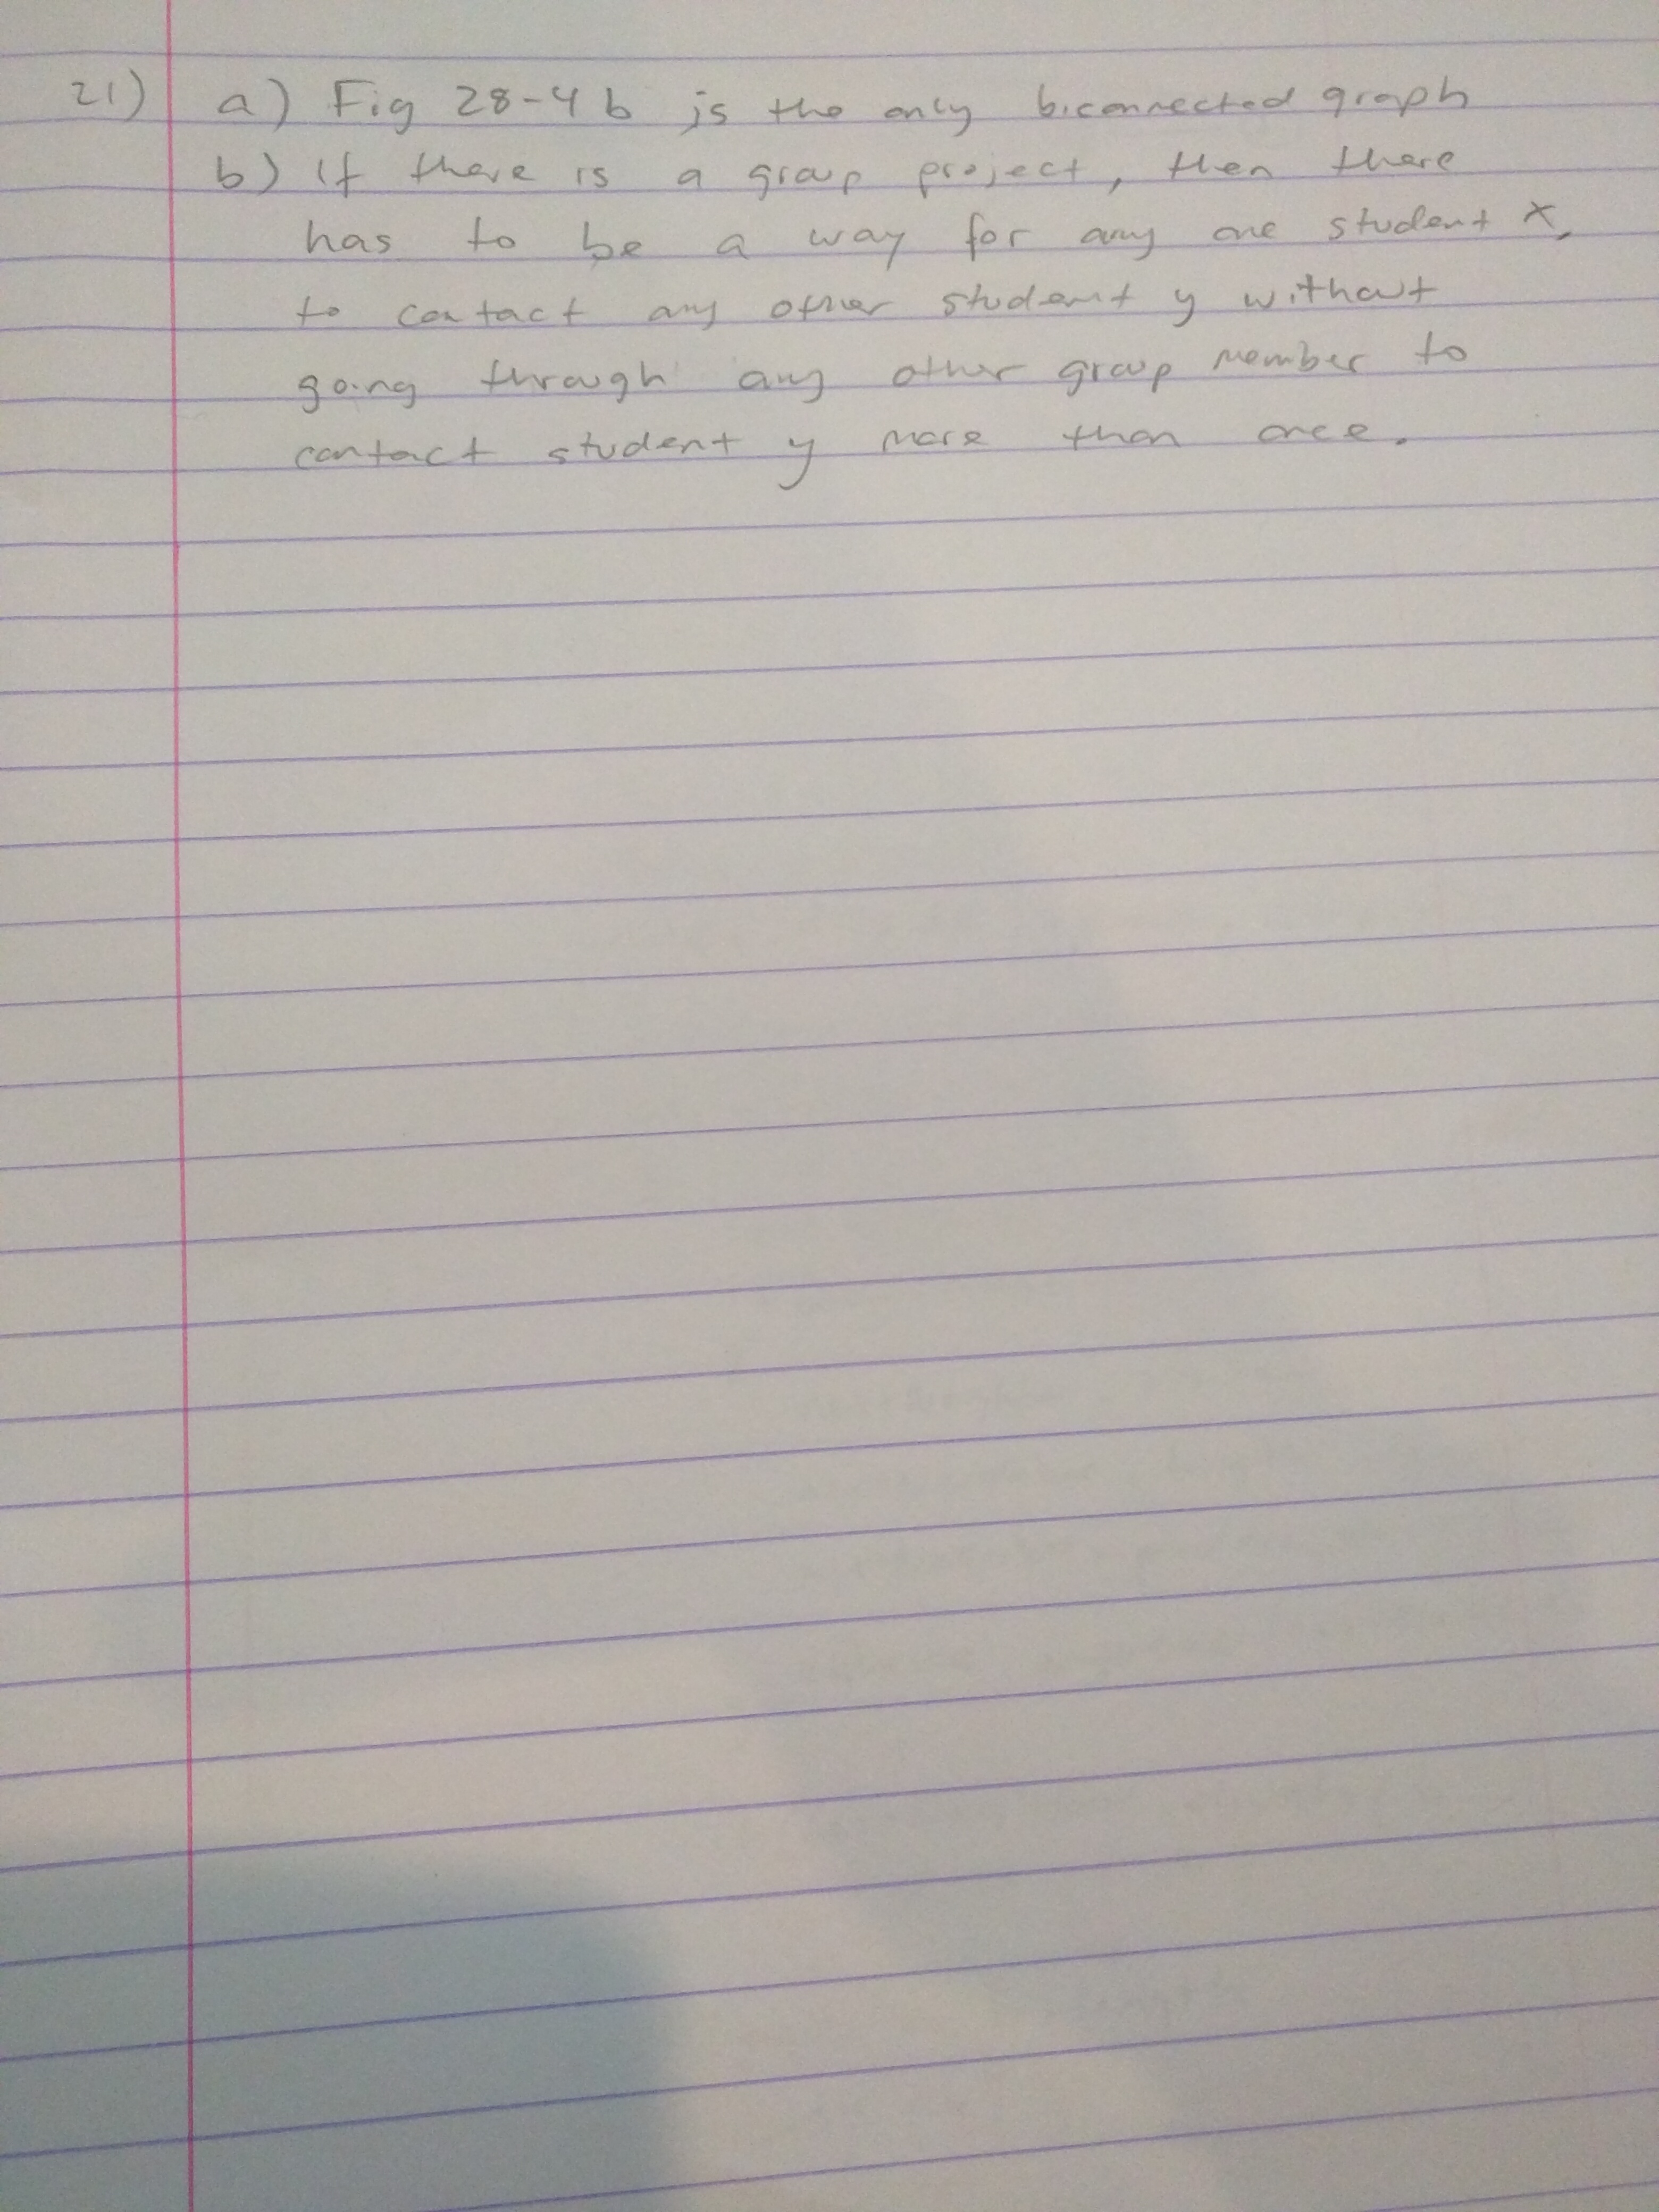 21) a) Fig 28-4 b is the only biconnected graph
b) If there is a group project, then there
has to be a way for any one student x,
to contact any other student y without
going through any other group member to
contact student y more than once.